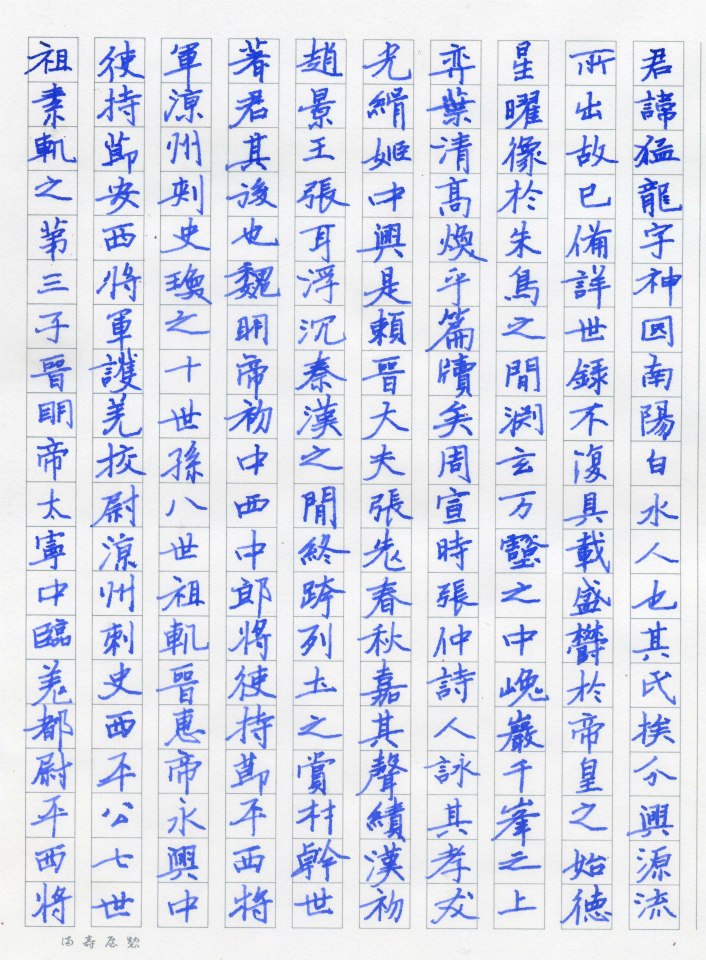 君諱猛龍字神囧南陽白水人也其氏挨分興源流
所出故已備詳世録不復具載盛欝於帝皇之始德
星曜像於朱鳥之間渕玄万壑之中巉巖千峯之上
弈葉清高煥乎篇牘矣周宣時張仲詩人詠其孝友
光緝姬中興是頼晉大夫張老春秋嘉其聲績漢初
趙景王張耳浮沉秦漢之間終跨列土之賞材幹世
著君其後也魏明帝初中西中郎將使持節平西將
軍涼州刺史瓊之十世孫八世祖軌晉惠帝永興中
使持節安西將軍護羌挍尉涼州刺史西平公七世
祖素軌之第三子晉明帝太寧中臨羌都尉平西將